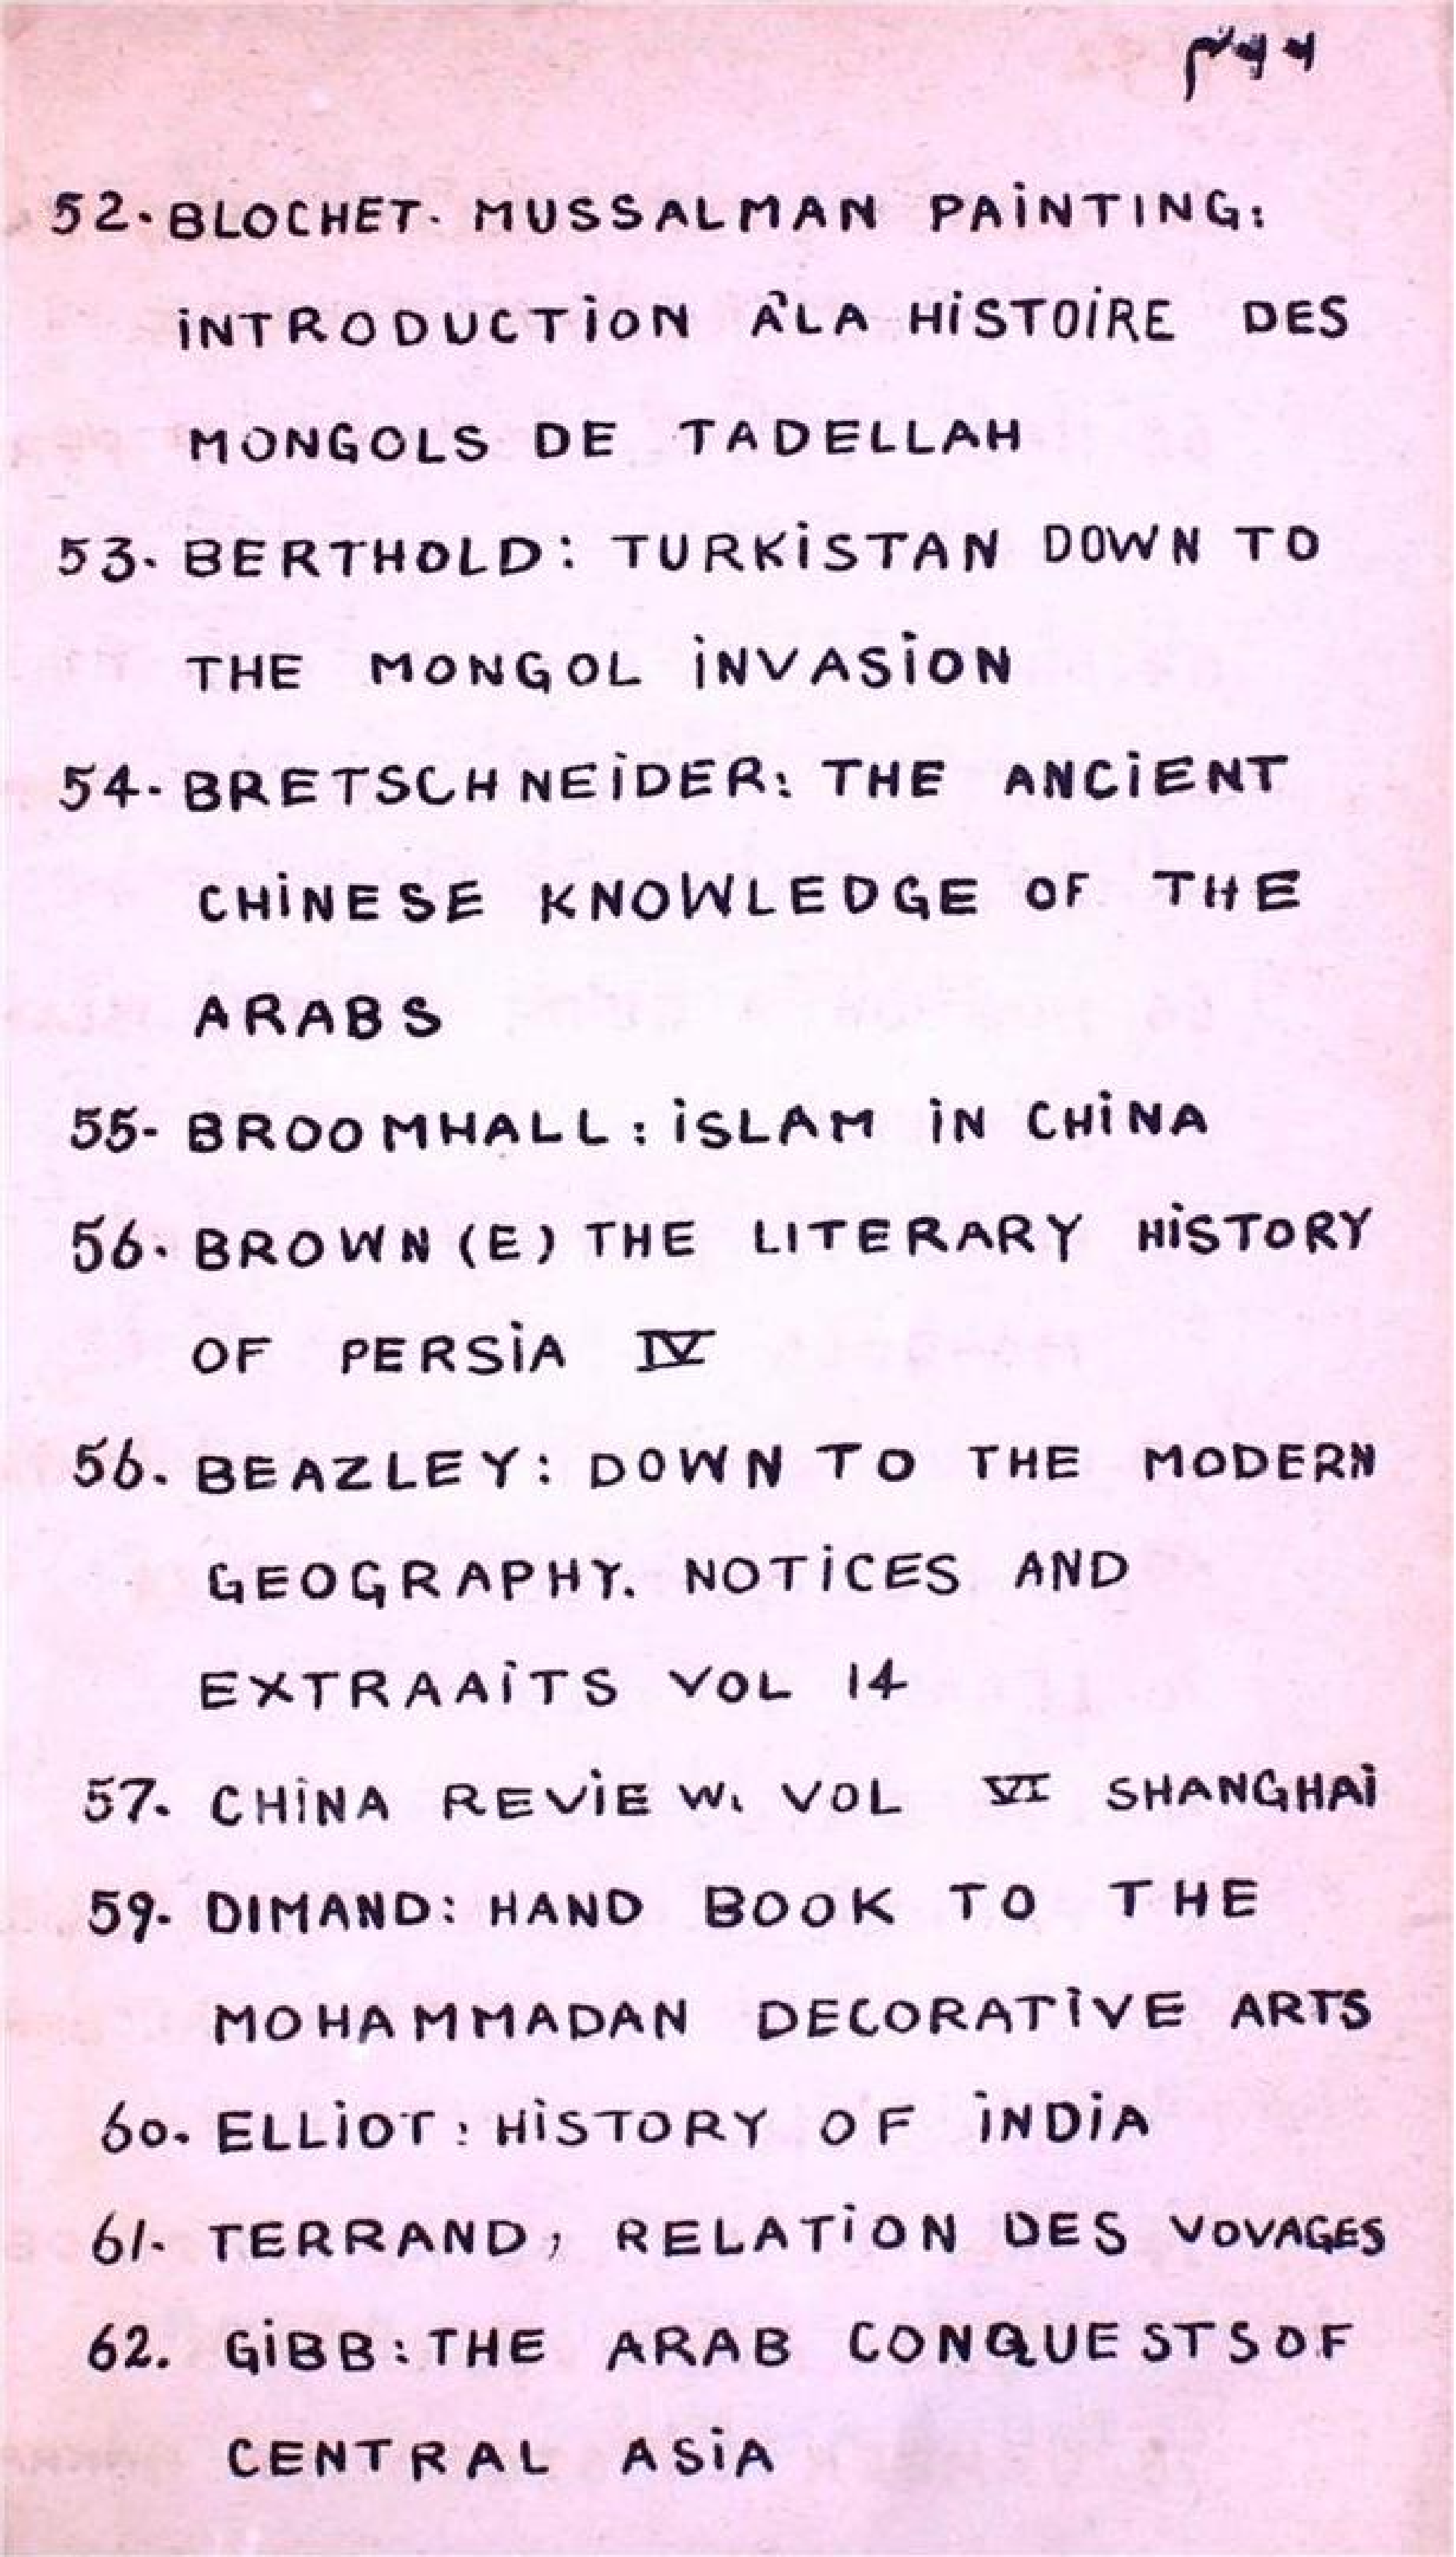 ۳۴۴
52. BLOCHET. MUSSALMAN PAINTING:
INTRODUCTION ÂLA HISTOIRE DES
MONGOLS DE TADELLAH
53. BERTHOLD: TURKISTAN DOWN TO
THE MONGOL INVASION
54. BRETSCHNEIDER: THE ANCIENT
CHINESE KNOWLEDGE OF THE
ARABS
55- BROOMHALL: ISLAM IN CHINA
56. BROWN (E) THE LITERARY HISTORY
OF PERSIA IV
56. BEAZLEY: DOWN TO THE MODERN
GEOGRAPHY. NOTICES AND
EXTRAAITS VOL 14
57. CHINA REVIEW. VOL VI SHANGHAI
59. DIMAND: HAND BOOK TO THE
MOHAMMADAN DECORATIVE ARTS
60. ELLIOT: HISTORY OF INDIA
61. TERRAND, RELATION DES VOVAGES
62. GIBB: THE ARAB CONQUESTS OF
CENTRAL ASIA